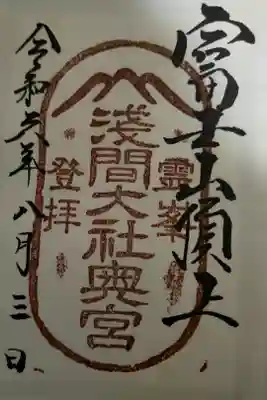 富士山頂上
霊峯
淺間大社奥宮
登拝
令和六年八月三日